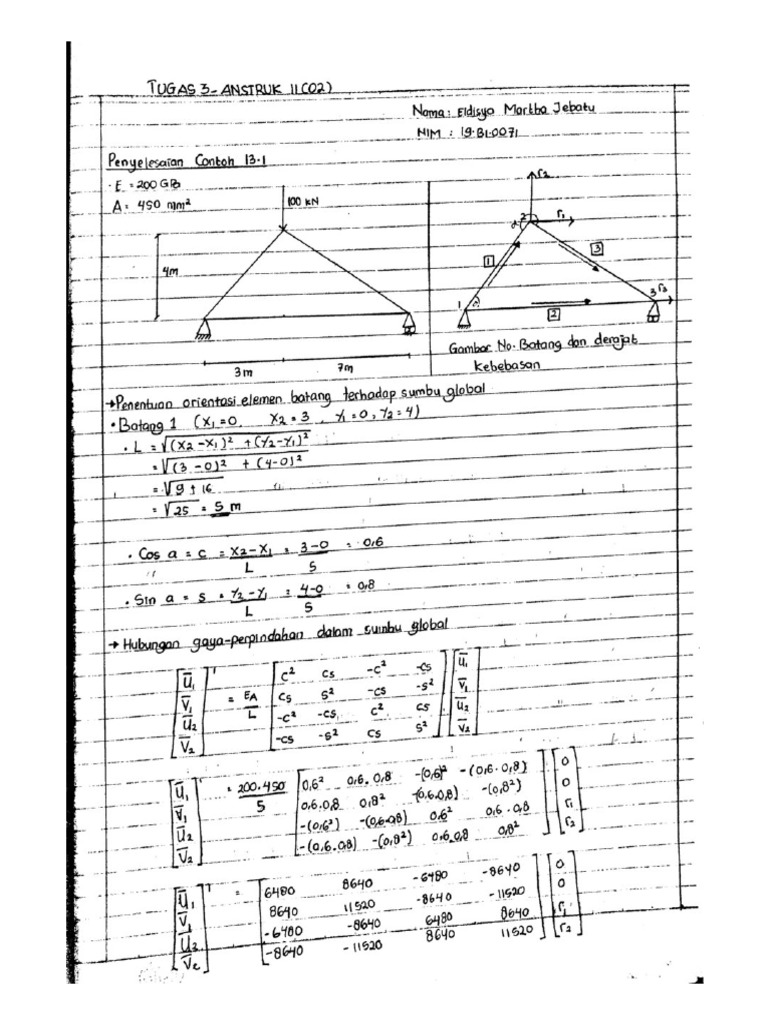 TUGAS 3 - ANSTRUK II (02)
Nama: Eldisya Martha Jebatu
NIM : 19.B1.0071
Penyelesaian Contoh 13.1
· E = 200 GPa
A = 450 mm²
100 kN
4m
3m
7m
r2
2
r1
1
3
1
3
r3
2
Gambar No. Batang dan derajat
kebebasan
→ Penentuan orientasi elemen batang terhadap sumbu global
• Batang 1 (X1=0, X2=3, Y1=0, Y2=4)
• L = √(X2-X1)² + (Y2-Y1)²
= √(3-0)² + (4-0)²
= √9 + 16
= √25 = 5 m
• Cos a = c = X2-X1/L = 3-0/5 = 0,6
• Sin a = s = Y2-Y1/L = 4-0/5 = 0,8
→ Hubungan gaya-perpindahan dalam sumbu global
[U̅1 V̅1 U̅2 V̅2]¹ = EA/L [c² cs -c² -cs
cs s² -cs -s²
-c² -cs c² cs
-cs -s² cs s²] [U̅1 V̅1 U̅2 V̅2]
[U̅1 V̅1 U̅2 V̅2]¹ = 200.450/5 [0,6² 0,6.0,8 -(0,6)² -(0,6.0,8)
0,6.0,8 0,8² -(0,6.0,8) -(0,8²)
-(0,6²) -(0,6.0,8) 0,6² 0,6.0,8
-(0,6.0,8) -(0,8²) 0,6.0,8 0,8²] [0 0 r1 r2]
[U̅1 V̅1 U̅2 V̅2]¹ = [6480 8640 -6480 -8640
8640 11520 -8640 -11520
-6480 -8640 6480 8640
-8640 -11520 8640 11520] [0 0 r1 r2]